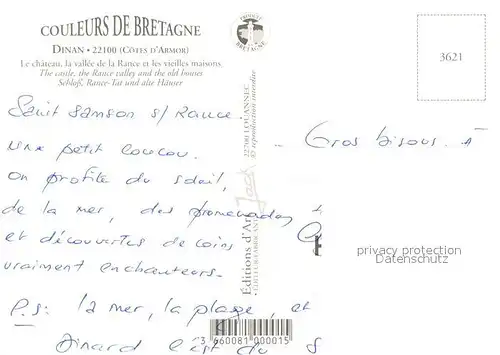 COULEURS DE BRETAGNE
DINAN • 22100 (CÔTES D'ARMOR)
Le château, la vallée de la Rance et les vieilles maisons.
The castle, the Rance valley and the old houses
Schloß, Rance-Tal und alte Häuser
PRODUIT EN BRETAGNE
3621
Saint Samson s/ Rance.
une petit coucou.
on profite du soleil,
de la mer, des promenades
et découvertes de coins
vraiment enchanteurs.
P.S: la mer, la plage, et
Dinard c'est du
Gros bisous. à
Editions d'Art Jack
• EDITEUR-FABRICANT •
22700 LOUANNEC
© reproduction interdite
privacy protection
Datenschutz
3 660081 000015